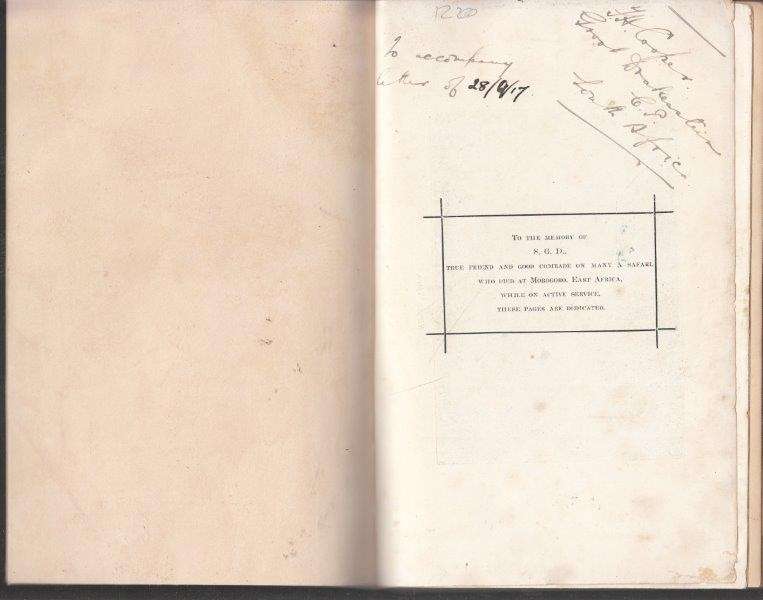 To accompany
letter of 28/9/17
H. Cooper.
Groot Drakenstein
C.P.
South Africa
TO THE MEMORY OF
S. G. D.,
TRUE FRIEND AND GOOD COMRADE ON MANY A SAFARI,
WHO DIED AT MOROGORO, EAST AFRICA,
WHILE ON ACTIVE SERVICE,
THESE PAGES ARE DEDICATED.